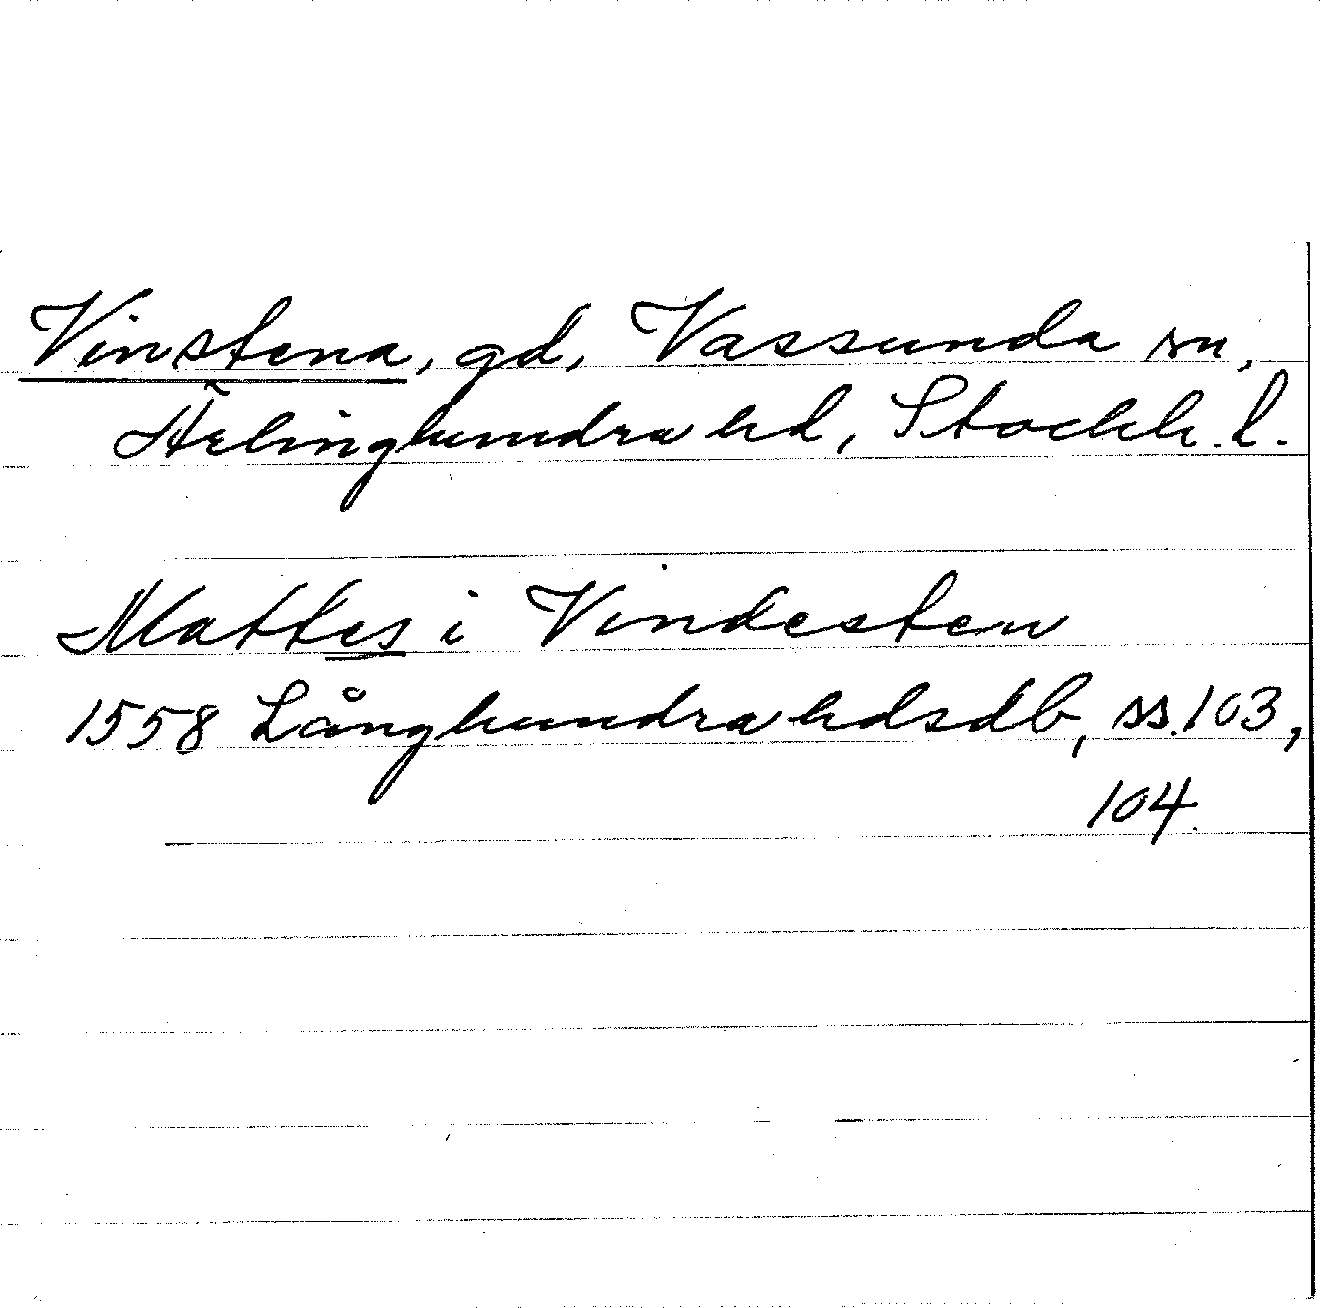 Vinstena, gd, Vassunda sn,
Ärlinghundra hd, Stockh. l.
Mattes i Vindesten
1558 Långhundra hdsdb, ss. 103,
104.